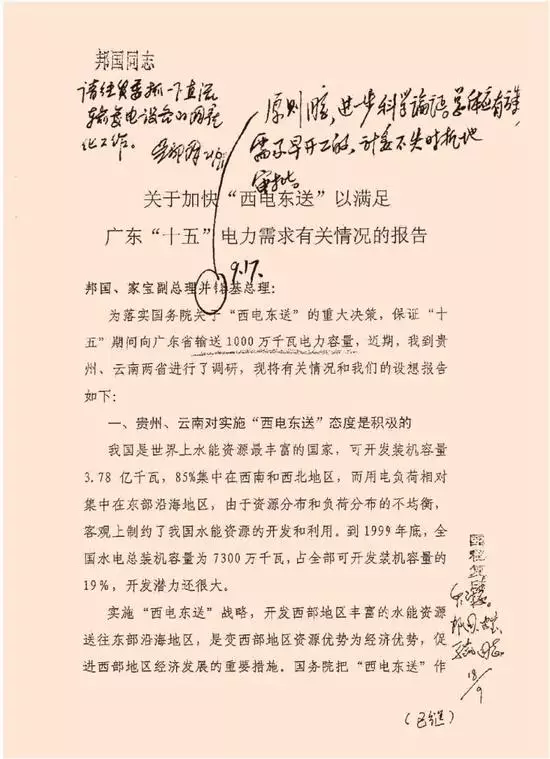 邦国同志
请经贸委抓一下直流
输变电设备的国产
化工作。
原则同意,进一步科学论证,总体应有
需要早开工的,计委不失时机地
审批。
关于加快“西电东送”以满足
广东“十五”电力需求有关情况的报告
9.17.
邦国、家宝副总理并镕基总理:
为落实国务院关于“西电东送”的重大决策,保证“十
五”期间向广东省输送1000万千瓦电力容量,近期,我到贵
州、云南两省进行了调研,现将有关情况和我们的设想报告
如下:
一、贵州、云南对实施“西电东送”态度是积极的
我国是世界上水能资源最丰富的国家,可开发装机容量
3.78 亿千瓦,85%集中在西南和西北地区,而用电负荷相对
集中在东部沿海地区,由于资源分布和负荷分布的不均衡,
客观上制约了我国水能资源的开发和利用。到1999年底,全
国水电总装机容量为7300万千瓦,占全部可开发装机容量的
19%,开发潜力还很大。
实施“西电东送”战略,开发西部地区丰富的水能资源
送往东部沿海地区,是变西部地区资源优势为经济优势,促
进西部地区经济发展的重要措施。国务院把“西电东送”作
18/9